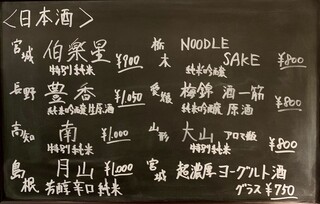 <日本酒>
宮城 伯楽星 ¥900
特別純米
長野 豊香 ¥1,050
純米吟醸生原酒
高知 南 ¥1,000
特別純米
島根 月山 ¥1,000
芳醇辛口純米
栃木 NOODLE
SAKE ¥800
純米吟醸
愛媛 梅錦 酒一筋
純米吟醸 原酒 ¥800
山形 大山 アロマ
¥800
宮城 超濃厚ヨーグルト酒
グラス ¥750